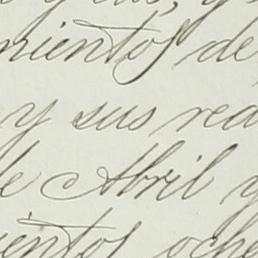 mientos de
y sus rea
de Abril y
ientos oche